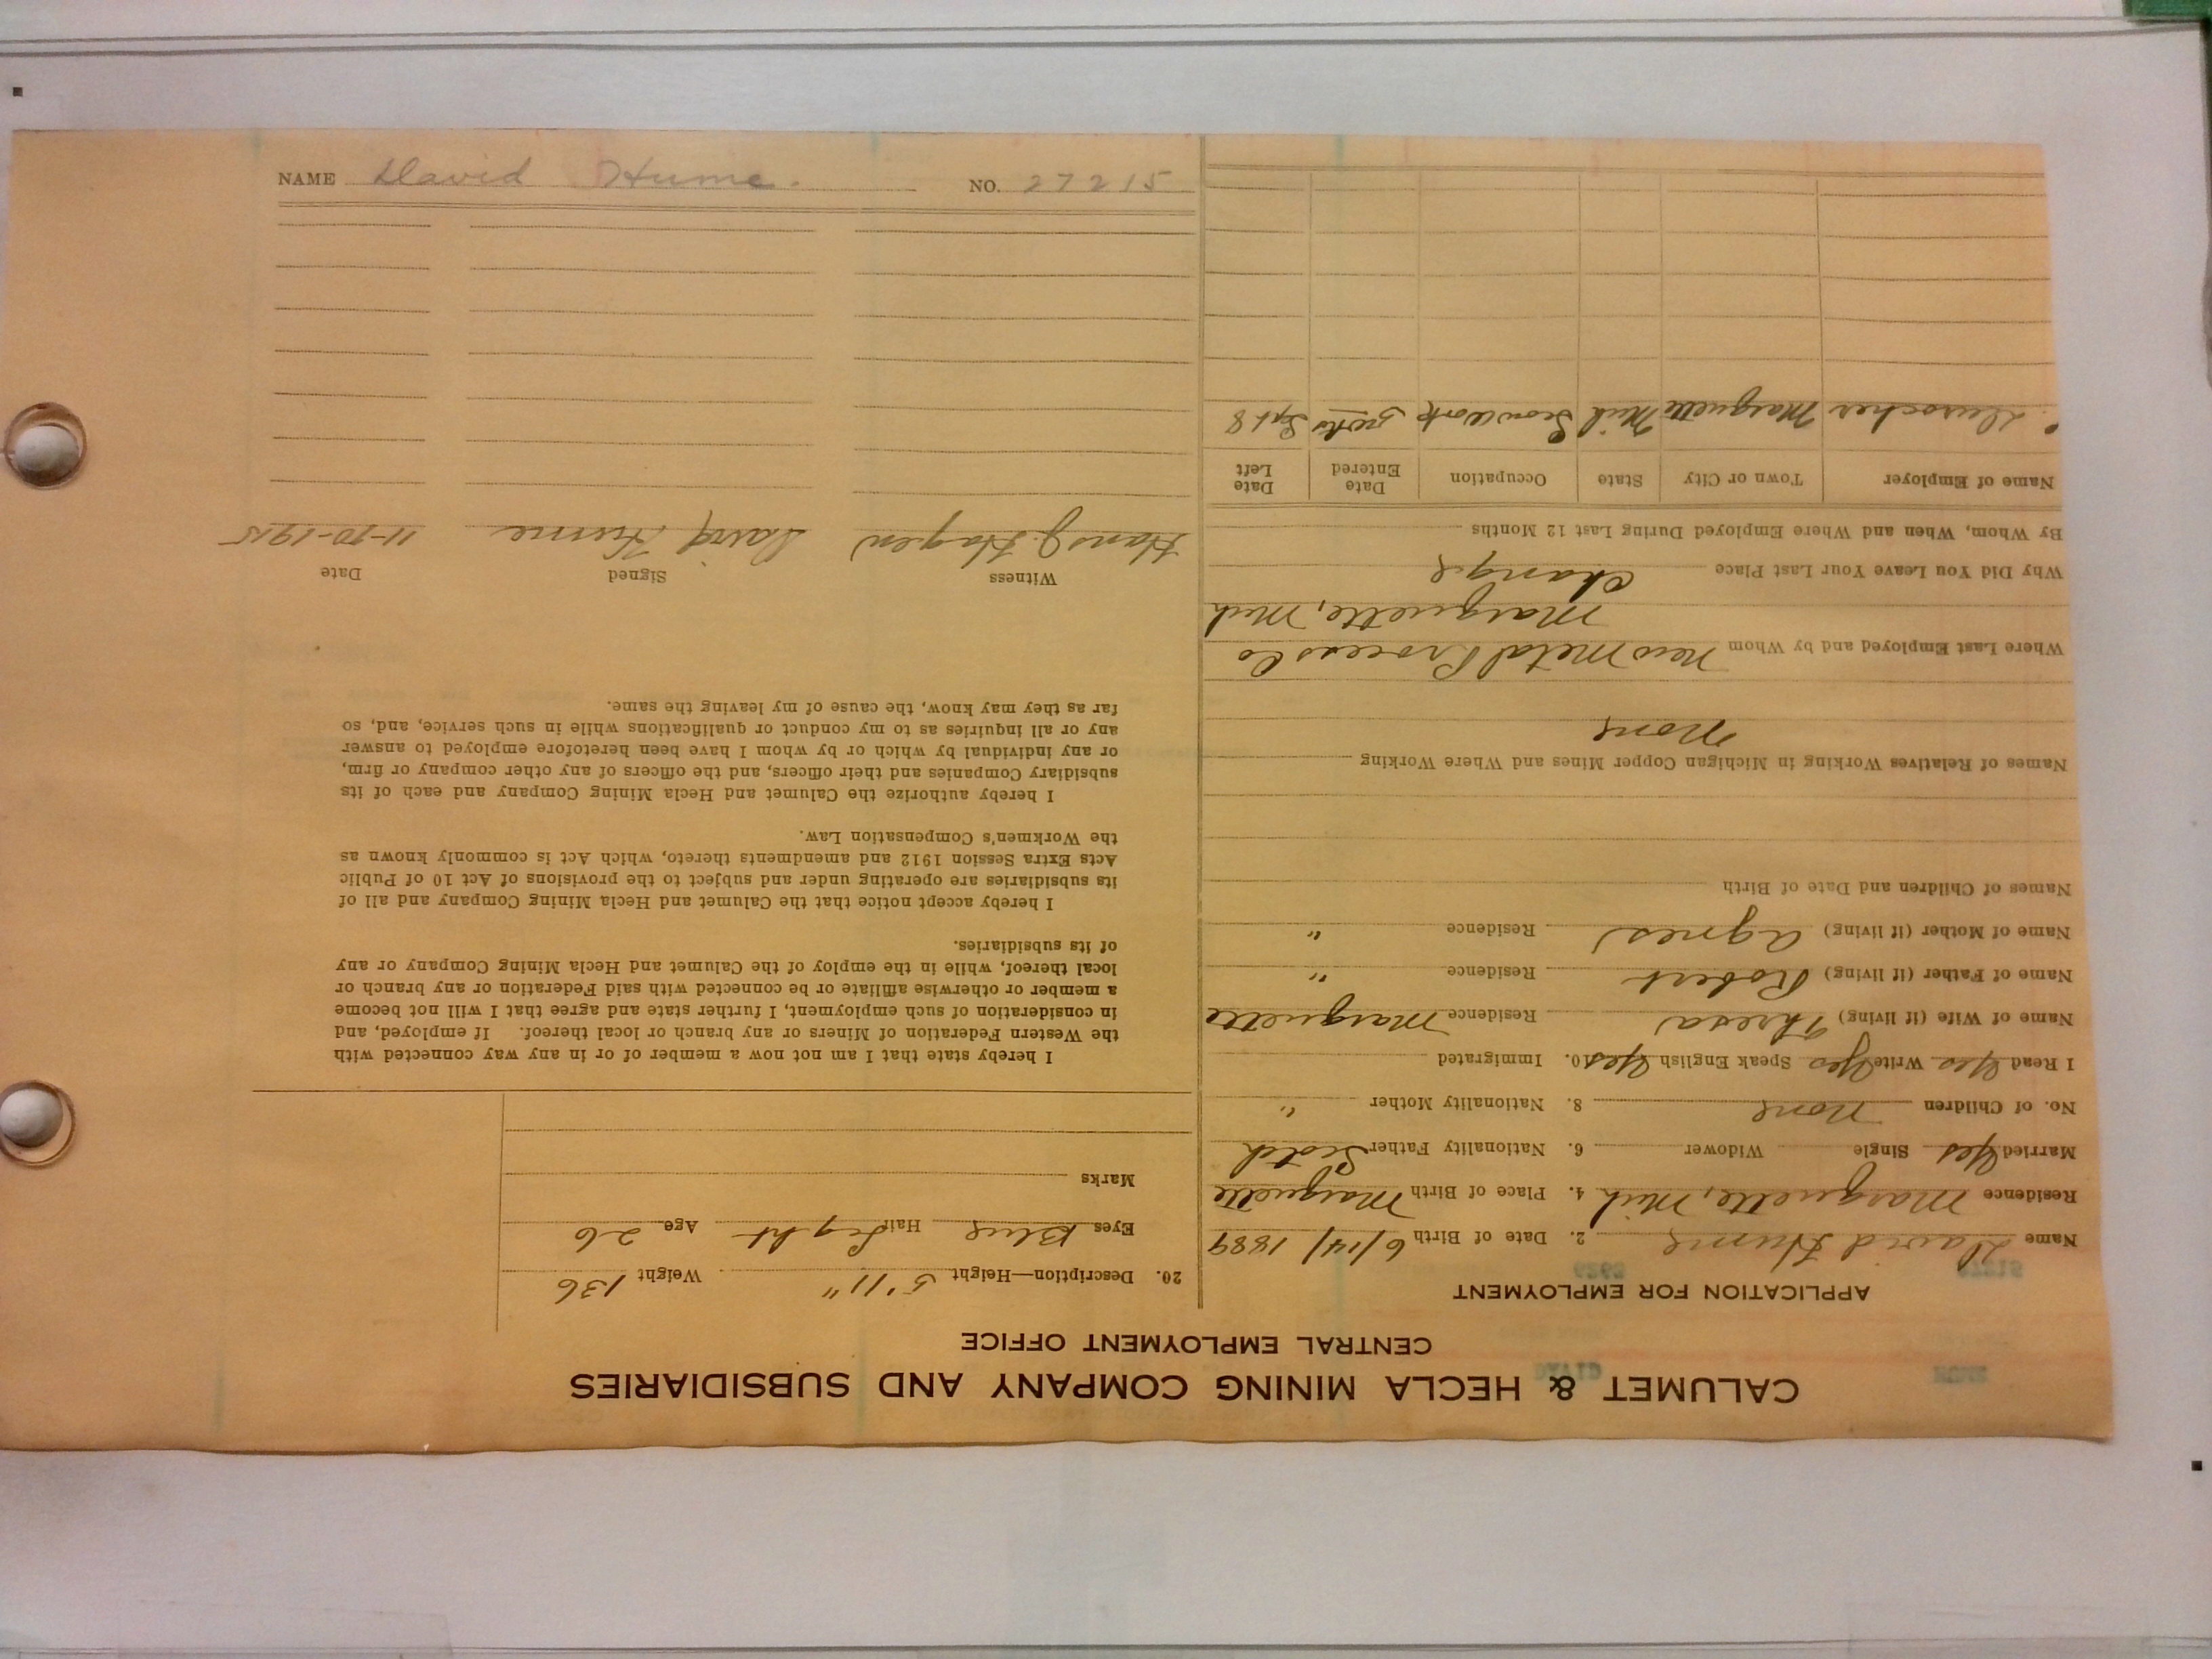 CALUMET & HECLA MINING COMPANY AND SUBSIDIARIES
CENTRAL EMPLOYMENT OFFICE
APPLICATION FOR EMPLOYMENT
Name David Hume 2. Date of Birth 6/14/1889
Residence Marquette, Mich 4. Place of Birth Marquette
Married Yes Single Widower 6. Nationality Father Scotch
No. of Children None 8. Nationality Mother "
I Read Yes Write Yes Speak English Yes 10. Immigrated
Name of Wife (if living) Thresa Residence Marquette
Name of Father (if living) Robert Residence "
Name of Mother (if living) Agnes Residence "
Names of Children and Date of Birth
Names of Relatives Working in Michigan Copper Mines and Where Working
None
Where Last Employed and by Whom New Metal Process Co
Marquette, Mich
Why Did You Leave Your Last Place Change
By Whom, When and Where Employed During Last 12 Months
Name of Employer Town or City State Occupation Date Entered Date Left
Durocher Marquette Mich Scow Work Sept 8
20. Description—Height 5'11" Weight 136
Eyes Blue Hair Light Age 26
Marks
I hereby state that I am not now a member of or in any way connected with
the Western Federation of Miners or any branch or local thereof. If employed, and
in consideration of such employment, I further state and agree that I will not become
a member or otherwise affiliate or be connected with said Federation or any branch or
local thereof, while in the employ of the Calumet and Hecla Mining Company or any
of its subsidiaries.
I hereby accept notice that the Calumet and Hecla Mining Company and all of
its subsidiaries are operating under and subject to the provisions of Act 10 of Public
Acts Extra Session 1912 and amendments thereto, which Act is commonly known as
the Workmen's Compensation Law.
I hereby authorize the Calumet and Hecla Mining Company and each of its
subsidiary Companies and their officers, and the officers of any other company or firm,
or any individual by which or by whom I have been heretofore employed to answer
any or all inquiries as to my conduct or qualifications while in such service, and, so
far as they may know, the cause of my leaving the same.
Witness Signed Date
Hans J. Hagen David Hume 11-10-1915
NAME David Hume. NO. 27215